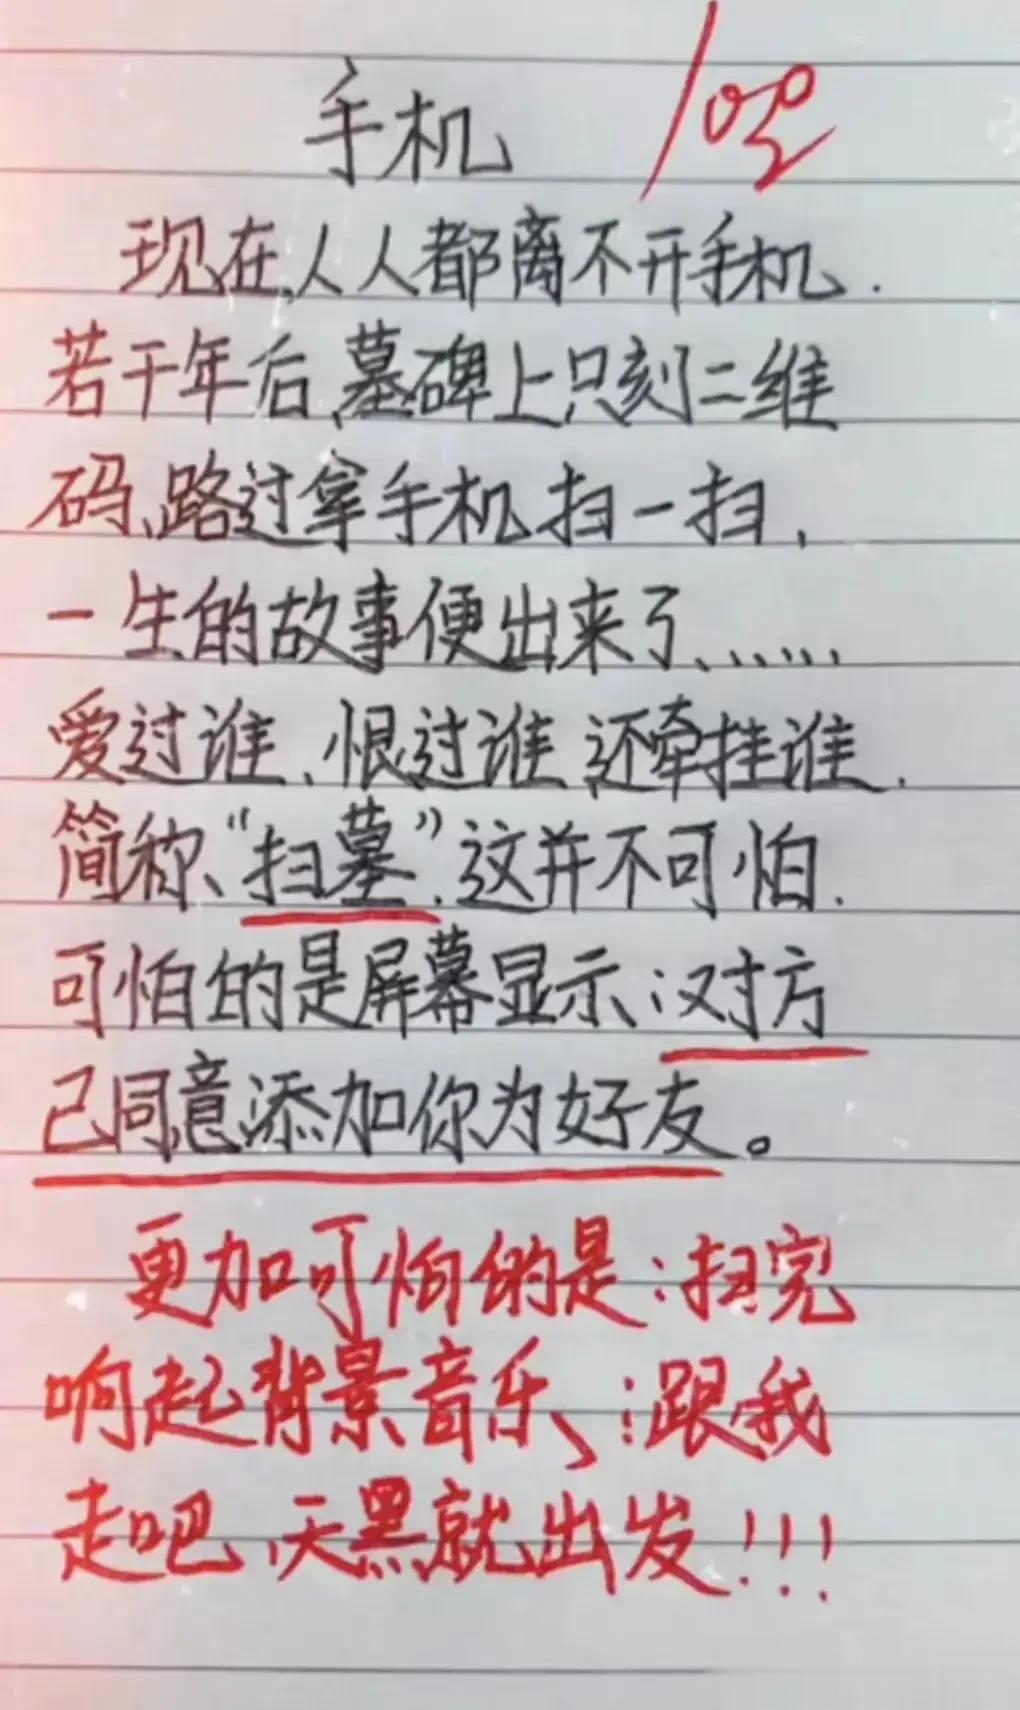 手机 100
现在人人都离不开手机.
若干年后,墓碑上只刻二维
码、路过拿手机扫一扫,
一生的故事便出来了、.....
爱过谁、恨过谁 还牵挂谁.
简称、“扫墓”.这并不可怕.
可怕的是屏幕显示:对方
已同意添加你为好友。
更加可怕的是:扫完
响起背景音乐、:跟我
走吧、天黑就出发!!!